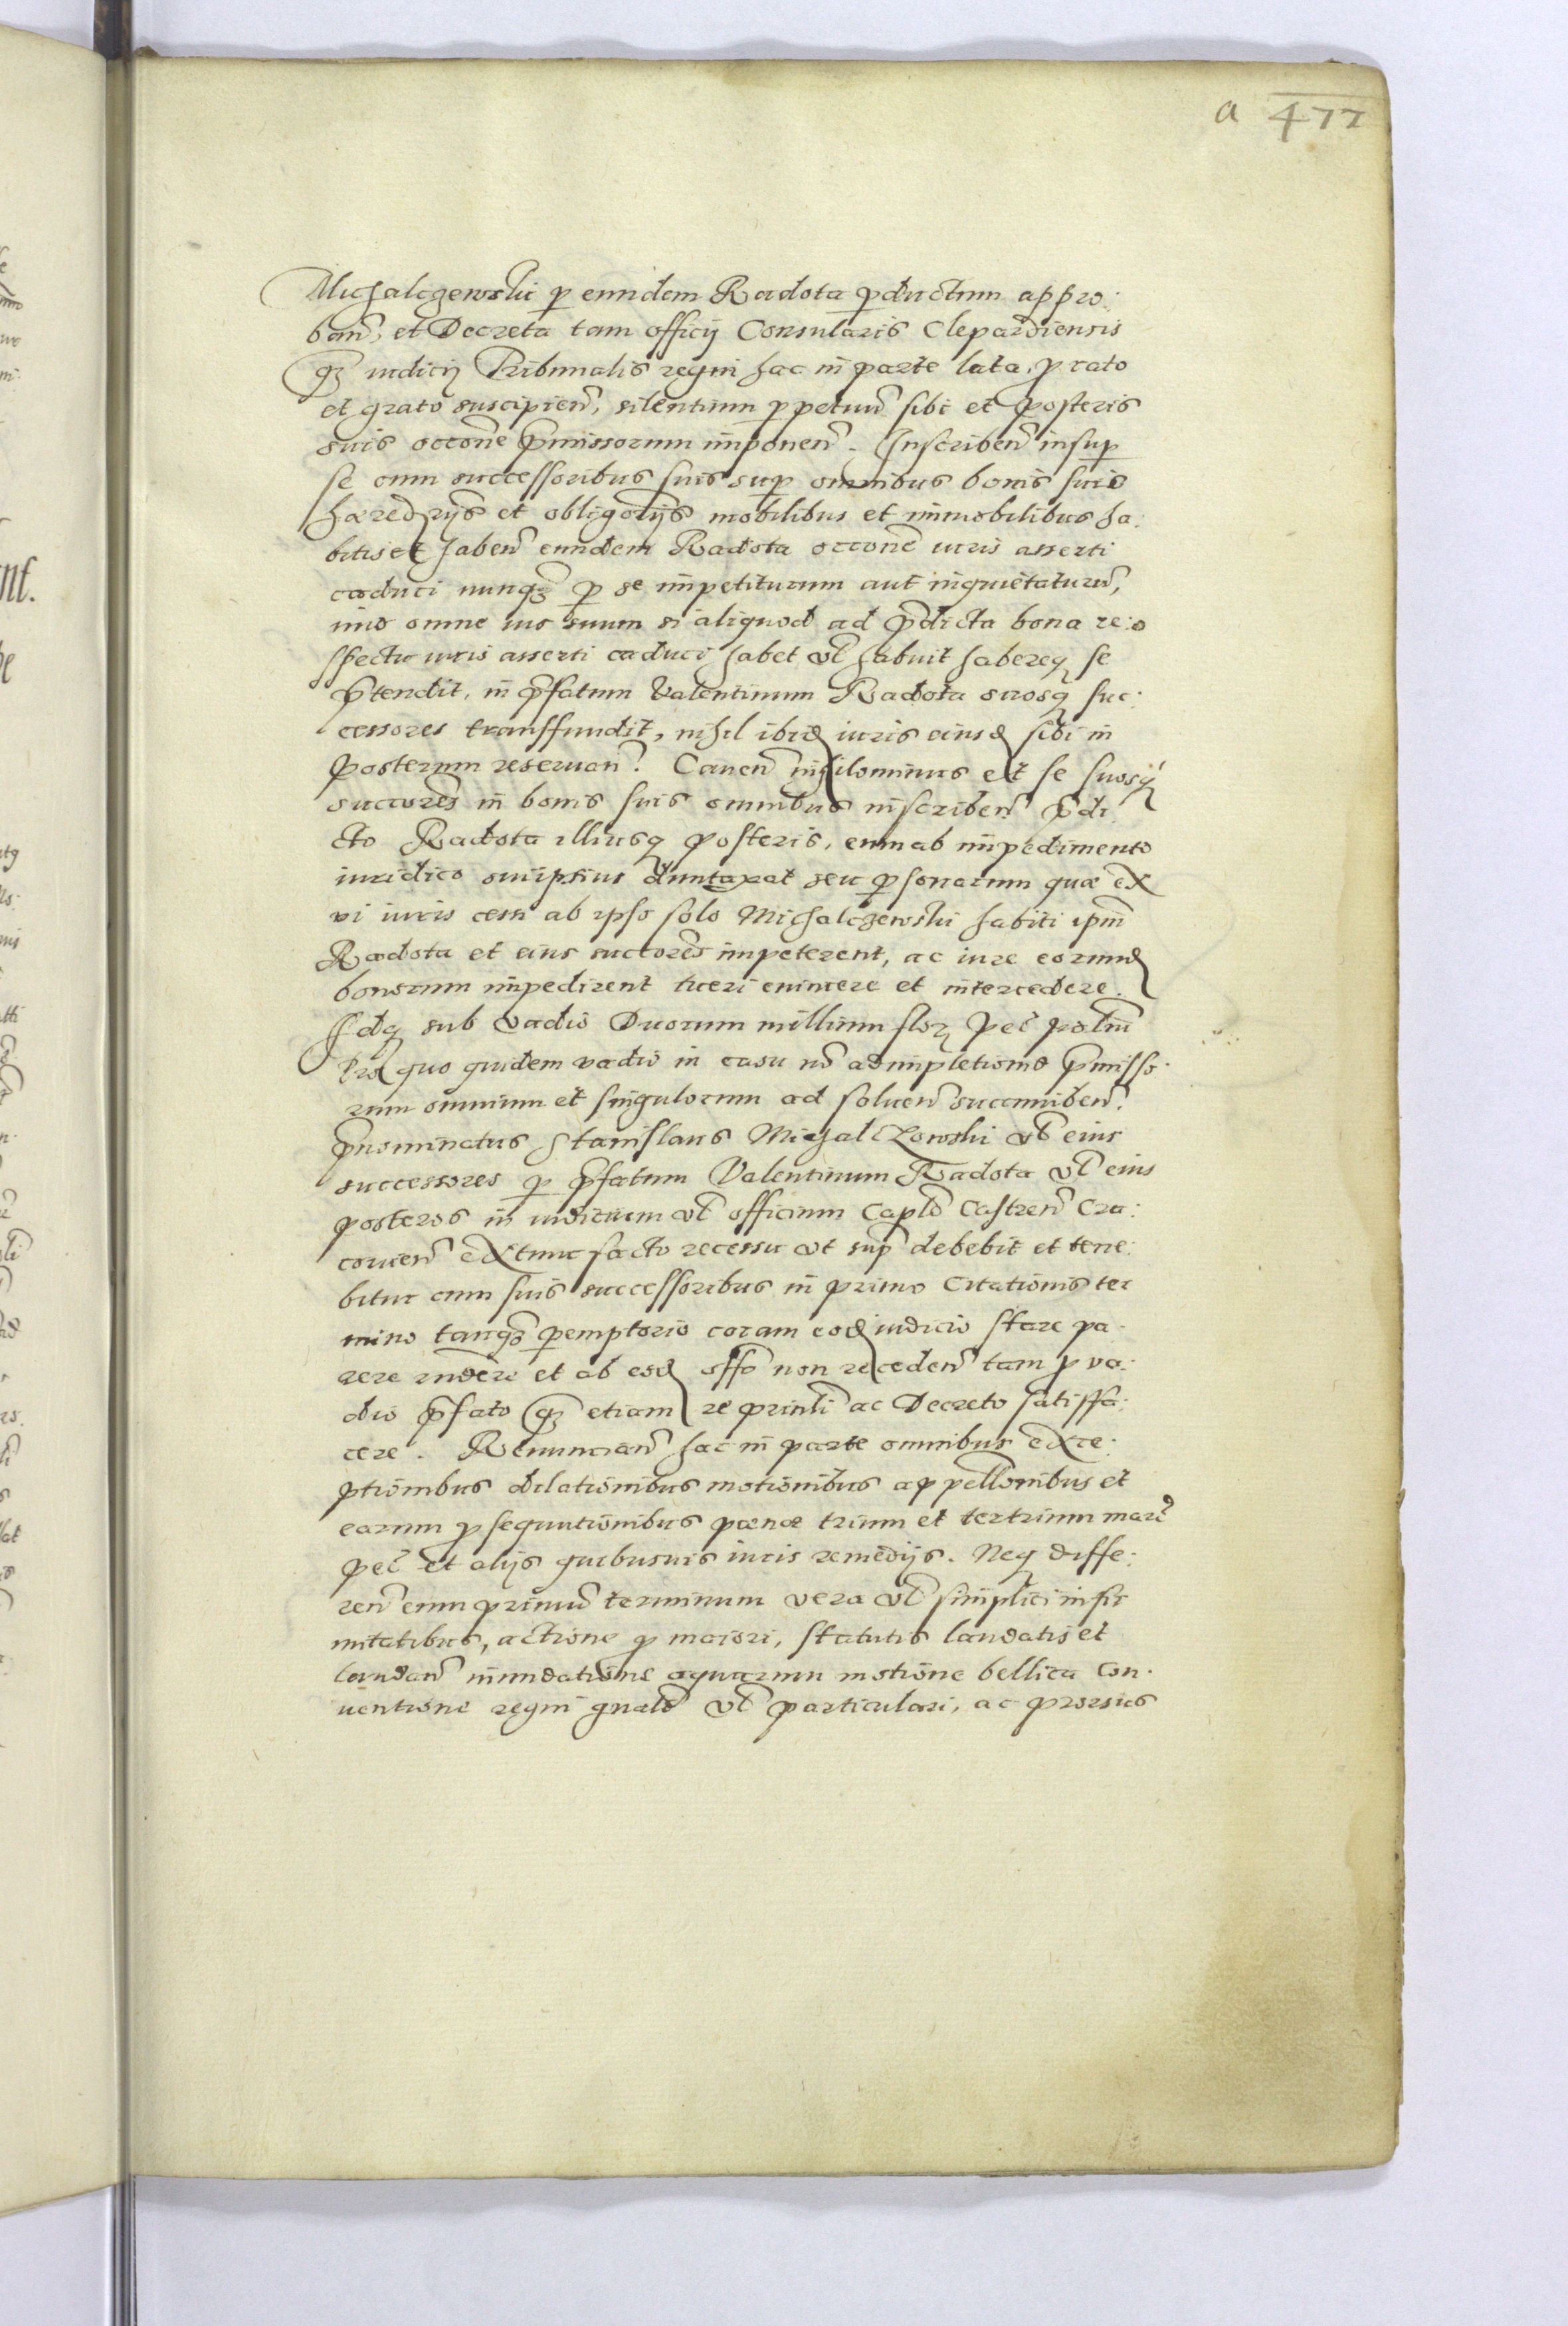 a 477
Michalczewski p eundem Radota productum appro:
ban͂, et Decreta tam officij Consularis Clepardiensis
q̃ iudicij Tribunalis regni hac in parte lata, p rato
et grato suscipien͂, silentium ppetuu͂ sibi et posteris
suis occone p̃missorum imponen͂. Inscriben͂ insup
se cum successoribus suis sup omnibus bonis suis
hæredrijs et obligorijs mobilibus et immobilibus ha:
bitis et haben͂ eundem Radota occone iuris asserti
caduci nunq̃ p se impetiturum aut inquietaturu͂,
imo omne ius suum si aliquod ad p̃dicta bona re:
spectu iuris asserti caduci habet vl̃ habuit habereq se
p̃tendit, in p̃fatum Valentinum Radota suosq suc:
cessores transfundit, nihil ibid iuris eiusd sibi in
posterum reseruan͂. Cauen͂ nihilominus et se suosq
succores in bonis suis omnibus inscriben͂ p̃di
cto Radota illiusq posteris, eum ab impedimento
iuridico suiipsius duntaxat seu psonarum quæ ex
vi iuris cessi ab ipso solo Michalczewski habiti ipm͂
Radota et eius succores impeterent, ac iure eorund
bonorum impedirent tueri euincere et intercedere.
Idq sub vadio Duorum millium flor pec̃ polni͂
Pro quo quidem vadio in casu no͂ adimpletionis p̃misso:
rum omnium et singulorum ad soluen͂ succumben͂.
p̃nominatus Stanislaus Michalczowski vl̃ eius
successores p p̃fatum Valentinum Radota vl̃ eius
posteros in iudicium vl̃ officium Caplẽ Castren͂ Cra:
couien͂ extunc facto recessu vt sup̃ debebit et tene:
bitur cum suis successoribus in primo Citationis ter
mino tanq̃ pemptorio coram eod iudicio stare pa:
rere rndere et ab eod offo non receden͂ tam p va:
dio p̃fato q̃ etiam re prinli͂ ac Decreto satisfa:
cere. Renuncian͂ hac in parte omnibus exce:
ptionibus dilationibus motionibus appellonibus et
earum psequutionibus pœnæ trium et tertrium marc̃
pec̃ et alijs quibusuis iuris remedijs. Neq diffe:
ren͂ eum primu͂ terminum vera vl̃ simplici infir
mitatibus, actione p maiori, statutis laudatis et
laudan͂ inundatione aquarum motione bellica Con:
uentione regni gnalẽ vl̃ particulari, ac prorsus